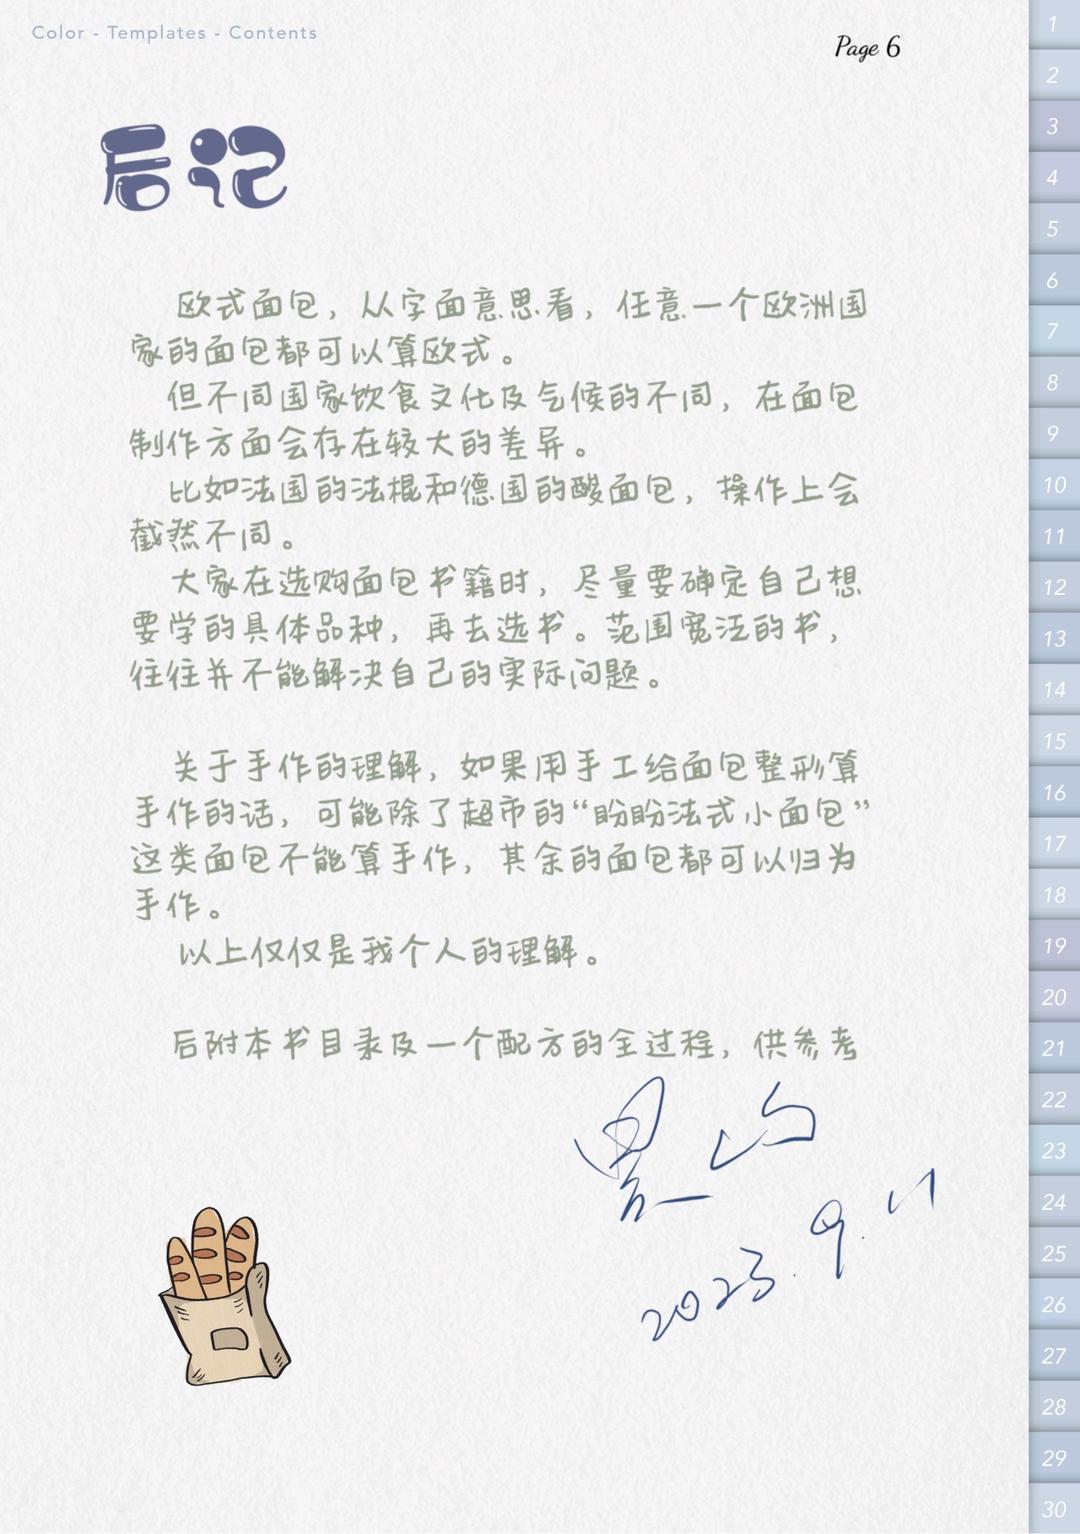 Color - Templates - Contents
Page 6
后记
欧式面包，从字面意思看，任意一个欧洲国
家的面包都可以算欧式。
但不同国家饮食文化及气候的不同，在面包
制作方面会存在较大的差异。
比如法国的法棍和德国的酸面包，操作上会
截然不同。
大家在选购面包书籍时，尽量要确定自己想
要学的具体品种，再去选书。范围宽泛的书，
往往并不能解决自己的实际问题。
关于手作的理解，如果用手工给面包整形算
手作的话，可能除了超市的“盼盼法式小面包”
这类面包不能算手作，其余的面包都可以归为
手作。
以上仅仅是我个人的理解。
后附本书目录及一个配方的全过程，供参考
2023.9.11
1
2
3
4
5
6
7
8
9
10
11
12
13
14
15
16
17
18
19
20
21
22
23
24
25
26
27
28
29
30